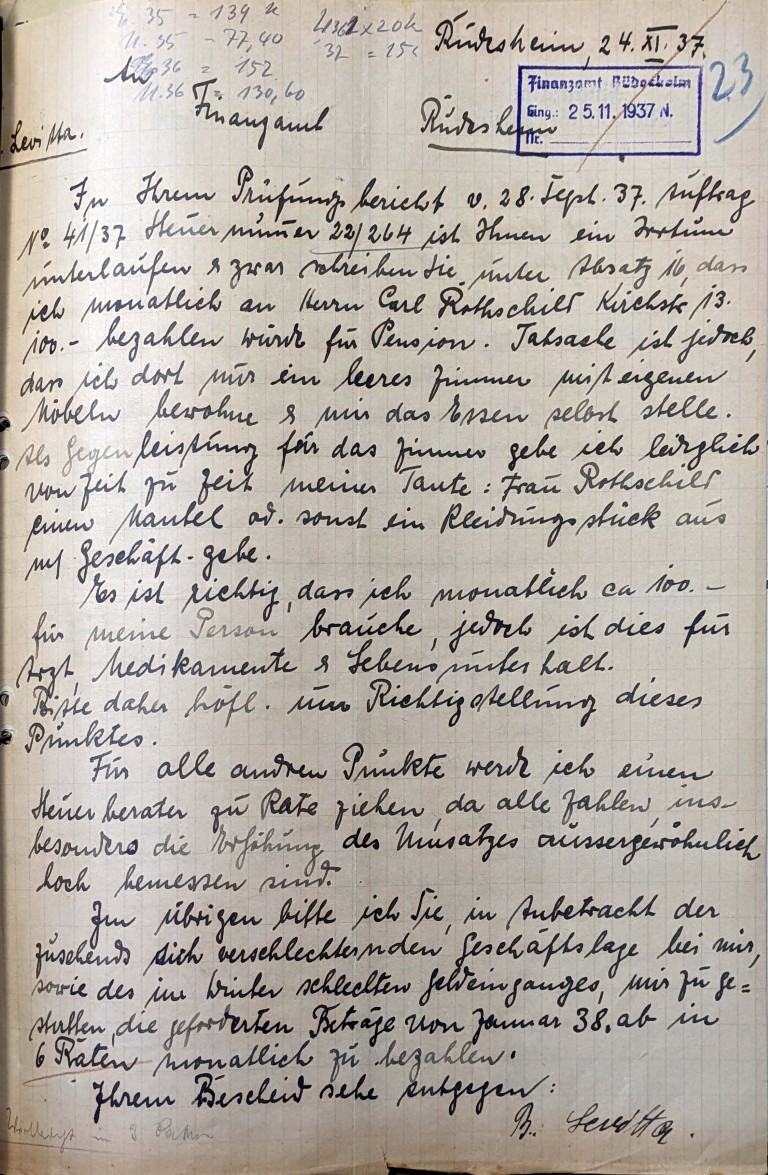 35 = 139
11.35 - 77,40
36 = 152
11.36 = 130,60
Rüdesheim, 24. XI. 37.
23
An
Finanzamt Rüdesheim
Eing.: 25.11.1937 N.
Nr.
Finanzamt
Rüdesheim
Levitta.
In Ihrem Prüfungsbericht v. 28. Sept. 37. Auftrag
No 41/37 Steuernummer 22/264 ist Ihnen ein Irrtum
unterlaufen & zwar schreiben Sie unter Absatz 16, dass
ich monatlich an Herrn Carl Rothschild Kirchstr. 13.
100.- bezahlen würde für Pension. Tatsache ist jedoch,
dass ich dort nur ein leeres Zimmer mit eigenen
Möbeln bewohne & mir das Essen selbst stelle.
Als Gegenleistung für das Zimmer gebe ich lediglich
von Zeit zu Zeit meiner Tante: Frau Rothschild
einen Mantel od. sonst ein Kleidungsstück aus
m/ Geschäft - gebe.
Es ist richtig, dass ich monatlich ca 100.-
für meine Person brauche, jedoch ist dies für
Arzt, Medikamente & Lebensunterhalt.
Bitte daher höfl. um Richtigstellung dieses
Punktes.
Für alle andren Punkte werde ich einen
Steuerberater zu Rate ziehen, da alle Zahlen, ins-
besonders die Erhöhung des Umsatzes aussergewöhnlich
hoch bemessen sind.
Im übrigen bitte ich Sie, in Anbetracht der
zusehends sich verschlechternden Geschäftslage bei mir,
sowie des im Winter schlechten Geldeinganges, mir zu ge=
statten, die geforderten Beträge von Januar 38. ab in
6 Raten monatlich zu bezahlen.
Ihrem Bescheid sehe entgegen:
B. Levitta.
in 3 Raten